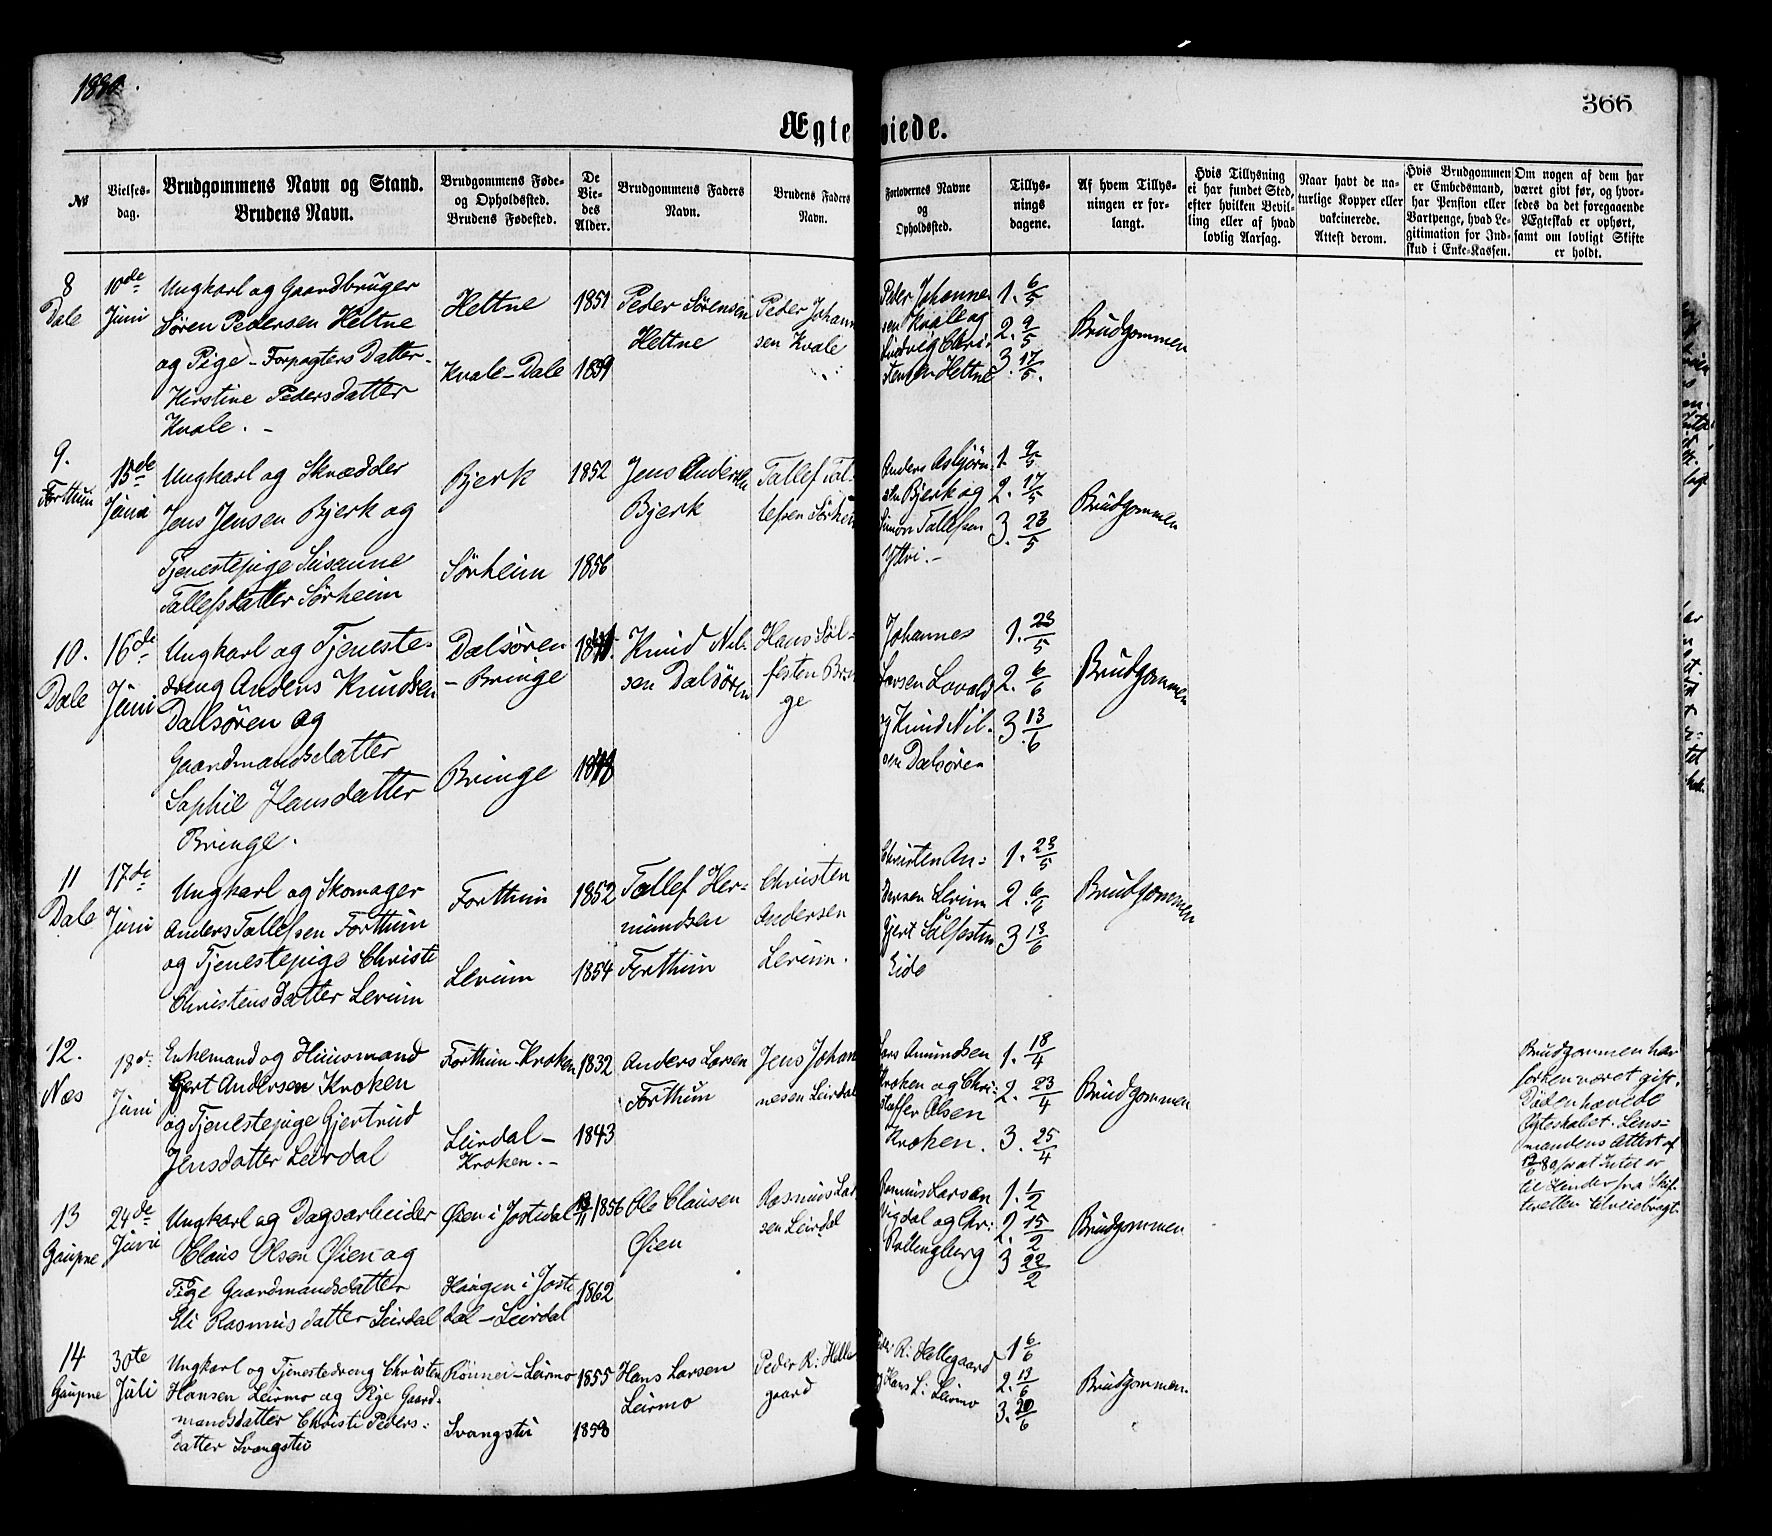 1880.
366
Ægteviede.
No
Vielses-
dag.
Brudgommens Navn og Stand.
Brudens Navn.
Brudgommens Føde-
og Opholdssted.
Brudens Fødested.
De
Vie-
des
Alder.
Brudgommens Faders
Navn.
Brudens Faders
Navn.
Forlovernes Navne
og
Opholdssted.
Tillys-
nings
dagene.
Af hvem Tillys-
ningen er for-
langt.
Hvis Tillysning
ei har fundet Sted,
efter hvilken Bevil-
ling eller af hvad
lovlig Aarsag.
Naar havt de na-
turlige Kopper eller
vakcinerede.
Attest derom.
Hvis Brudgommen
er Embedsmand,
har Pension eller
Vartpenge, hvad Le-
gitimation for Ind-
skud i Enke-Kassen.
Om nogen af dem har
været givt før, og hvor-
ledes da det foregaaende
Ægteskab er ophørt,
samt om lovligt Skifte
er holdt.
8
Dale
10de
Juni
Ungkarl og Gaardbruger
Sören Pedersen Hettne
og Pige - Forpagters Datter
Kirstine Pedersdatter
Kvale. -
Hettne
Kvale - Dale
1851
1859
Peder Sörensen
Hettne
Peder Johann
sen Kvale
Peder Johanne
sen Kvale og
Ludvig Chri-
stensen Hettne
1. 6/5
2. 9/5
3. 17/5.
Brudgommen
9.
Forthun
15de
Juni
Ungkarl og Skrædder
Jens Jensen Bjerk og
Tjenestepige Susanne
Tallefsdatter Sörheim
Bjerk
Sörheim
1852
1856
Jens Andersen
Bjerk
Tallef Tal-
lefsen Sörheim
Anders Asbjörn
sen Bjerk og
Simon Tallefsen
Yttri. -
1. 9/5
2. 17/5
3. 23/5
Brudgommen
10.
Dale
16de
Juni
Ungkarl og Tjeneste-
dreng Anders Knudsen
Dalsören og
Gaardmandsdatter
Sophie Hansdatter
Bringe.
Dalsören
- Bringe
Bringe
Knud Nil-
sen Dalsören
Hans Söl-
festen Brin
ge
Johannes
Larsen Lovald
og Knud Nil-
sen Dalsören
1. 23/5
2. 6/6
3. 13/6
Brudgommen
11
Dale
17de
Juni
Ungkarl og Skomager
Anders Tallefsen Forthun
og Tjenestepige Christi
Christensdatter Lerum
Forthun
Lerum
1852
1854
Tallef Her-
mundsen
Forthun
Christen
Andersen
Lerum.
Christen An-
dersen Lerum
Gjert Sølfesten
Eide
1. 23/5
2 6/6
3 13/6
Brudgommen
12.
Næs
18de
Juni
Enkemand og Huusmand
Gjert Andersen Kroken
og Tjenestepige Gjertrud
Jensdatter Leirdal
Forthun - Kroken
Leirdal -
Kroken. -
1832
1843
Anders Larsen
Forthun
Jens Johan
nesen Leirdal
Lars Amundsen
Kroken og Chri-
stoffer Olsen
Kroken.
1. 18/4
2. 23/4
3. 25/4
Brudgommen
Brudgommen har
forhen været gift.
Döden hævede
Ægteskabet. Lens-
mandens Attest af
for at Intet er
til Hinder fra Skif-
teretten tilveiebragt.
13
Gaupne
24de
Juni
Ungkarl og Dagsarbeider
Claus Olsen Øien og
Pige Gaardmandsdatter
Eli Rasmusdatter Leirdal
Øien i Jostedal
Haugen i Joste
dal - Leirdal
1856
1862
Ole Clausen
Øien
Rasmus Lar
sen Leirdal
Rasmus Larsen
Vigdal og Chr:
1. 1/2
2. 15/2
3 22/2
Brudgommen
14
Gaupne
30te
Juli
Ungkarl og Tjenestedreng Christen
Hansen Leirmo og Pige Gaard-
mandsdatter Christi Peders-
datter Svangstu
Rönnei - Leirmo
Svangstu
1855
1858
Hans Larsen
Leirmo
Peder R: Helle
gaard
Peder R: Hellegaard
og Hans L: Leirmo
1 6/6
2. 13/6
3. 20/6
Brudgommen.